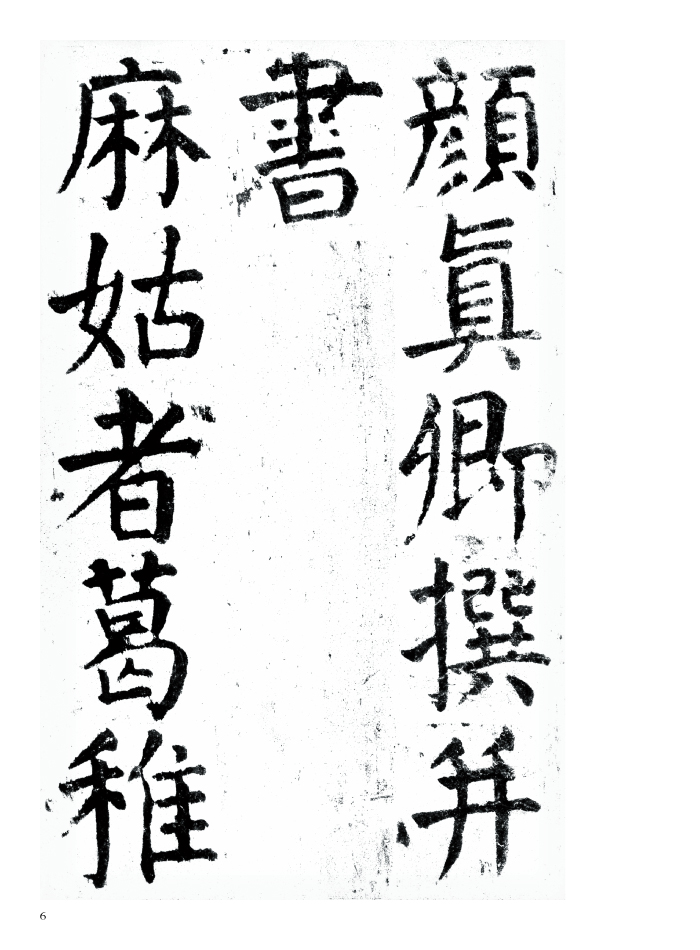 顏眞卿撰并
書
麻姑者葛稚
6